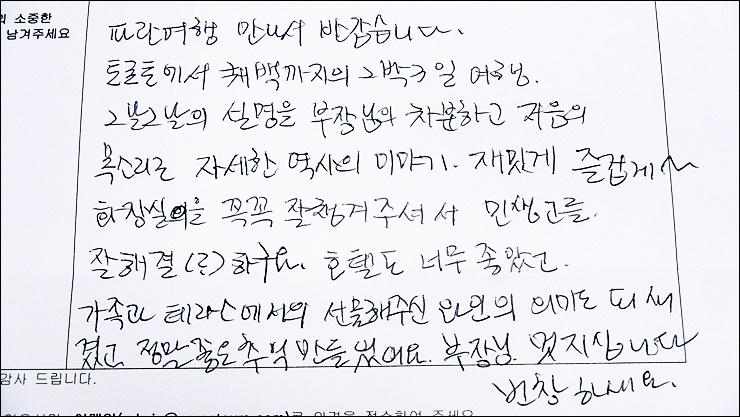 의 소중한
남겨주세요
파란여행 만나서 반갑습니다.
토론토에서 퀘백까지의 2박3일 여행.
그날그날의 설명을 부장님의 차분하고 저음의
목소리로 자세한 역사의 이야기. 재밌게 즐겁게~
화장실을 꼭꼭 잘챙겨주셔서 민생고를
잘해결(?)하구요. 호텔도 너무 좋았고.
가족과 테라스에서의 선물해주신 와인의 의미도 되새
겼고 정말좋은추억 만들었어요. 부장님. 멋지십니다
번창하세요.
감사 드립니다.
로 의견을 접수하여 주세요